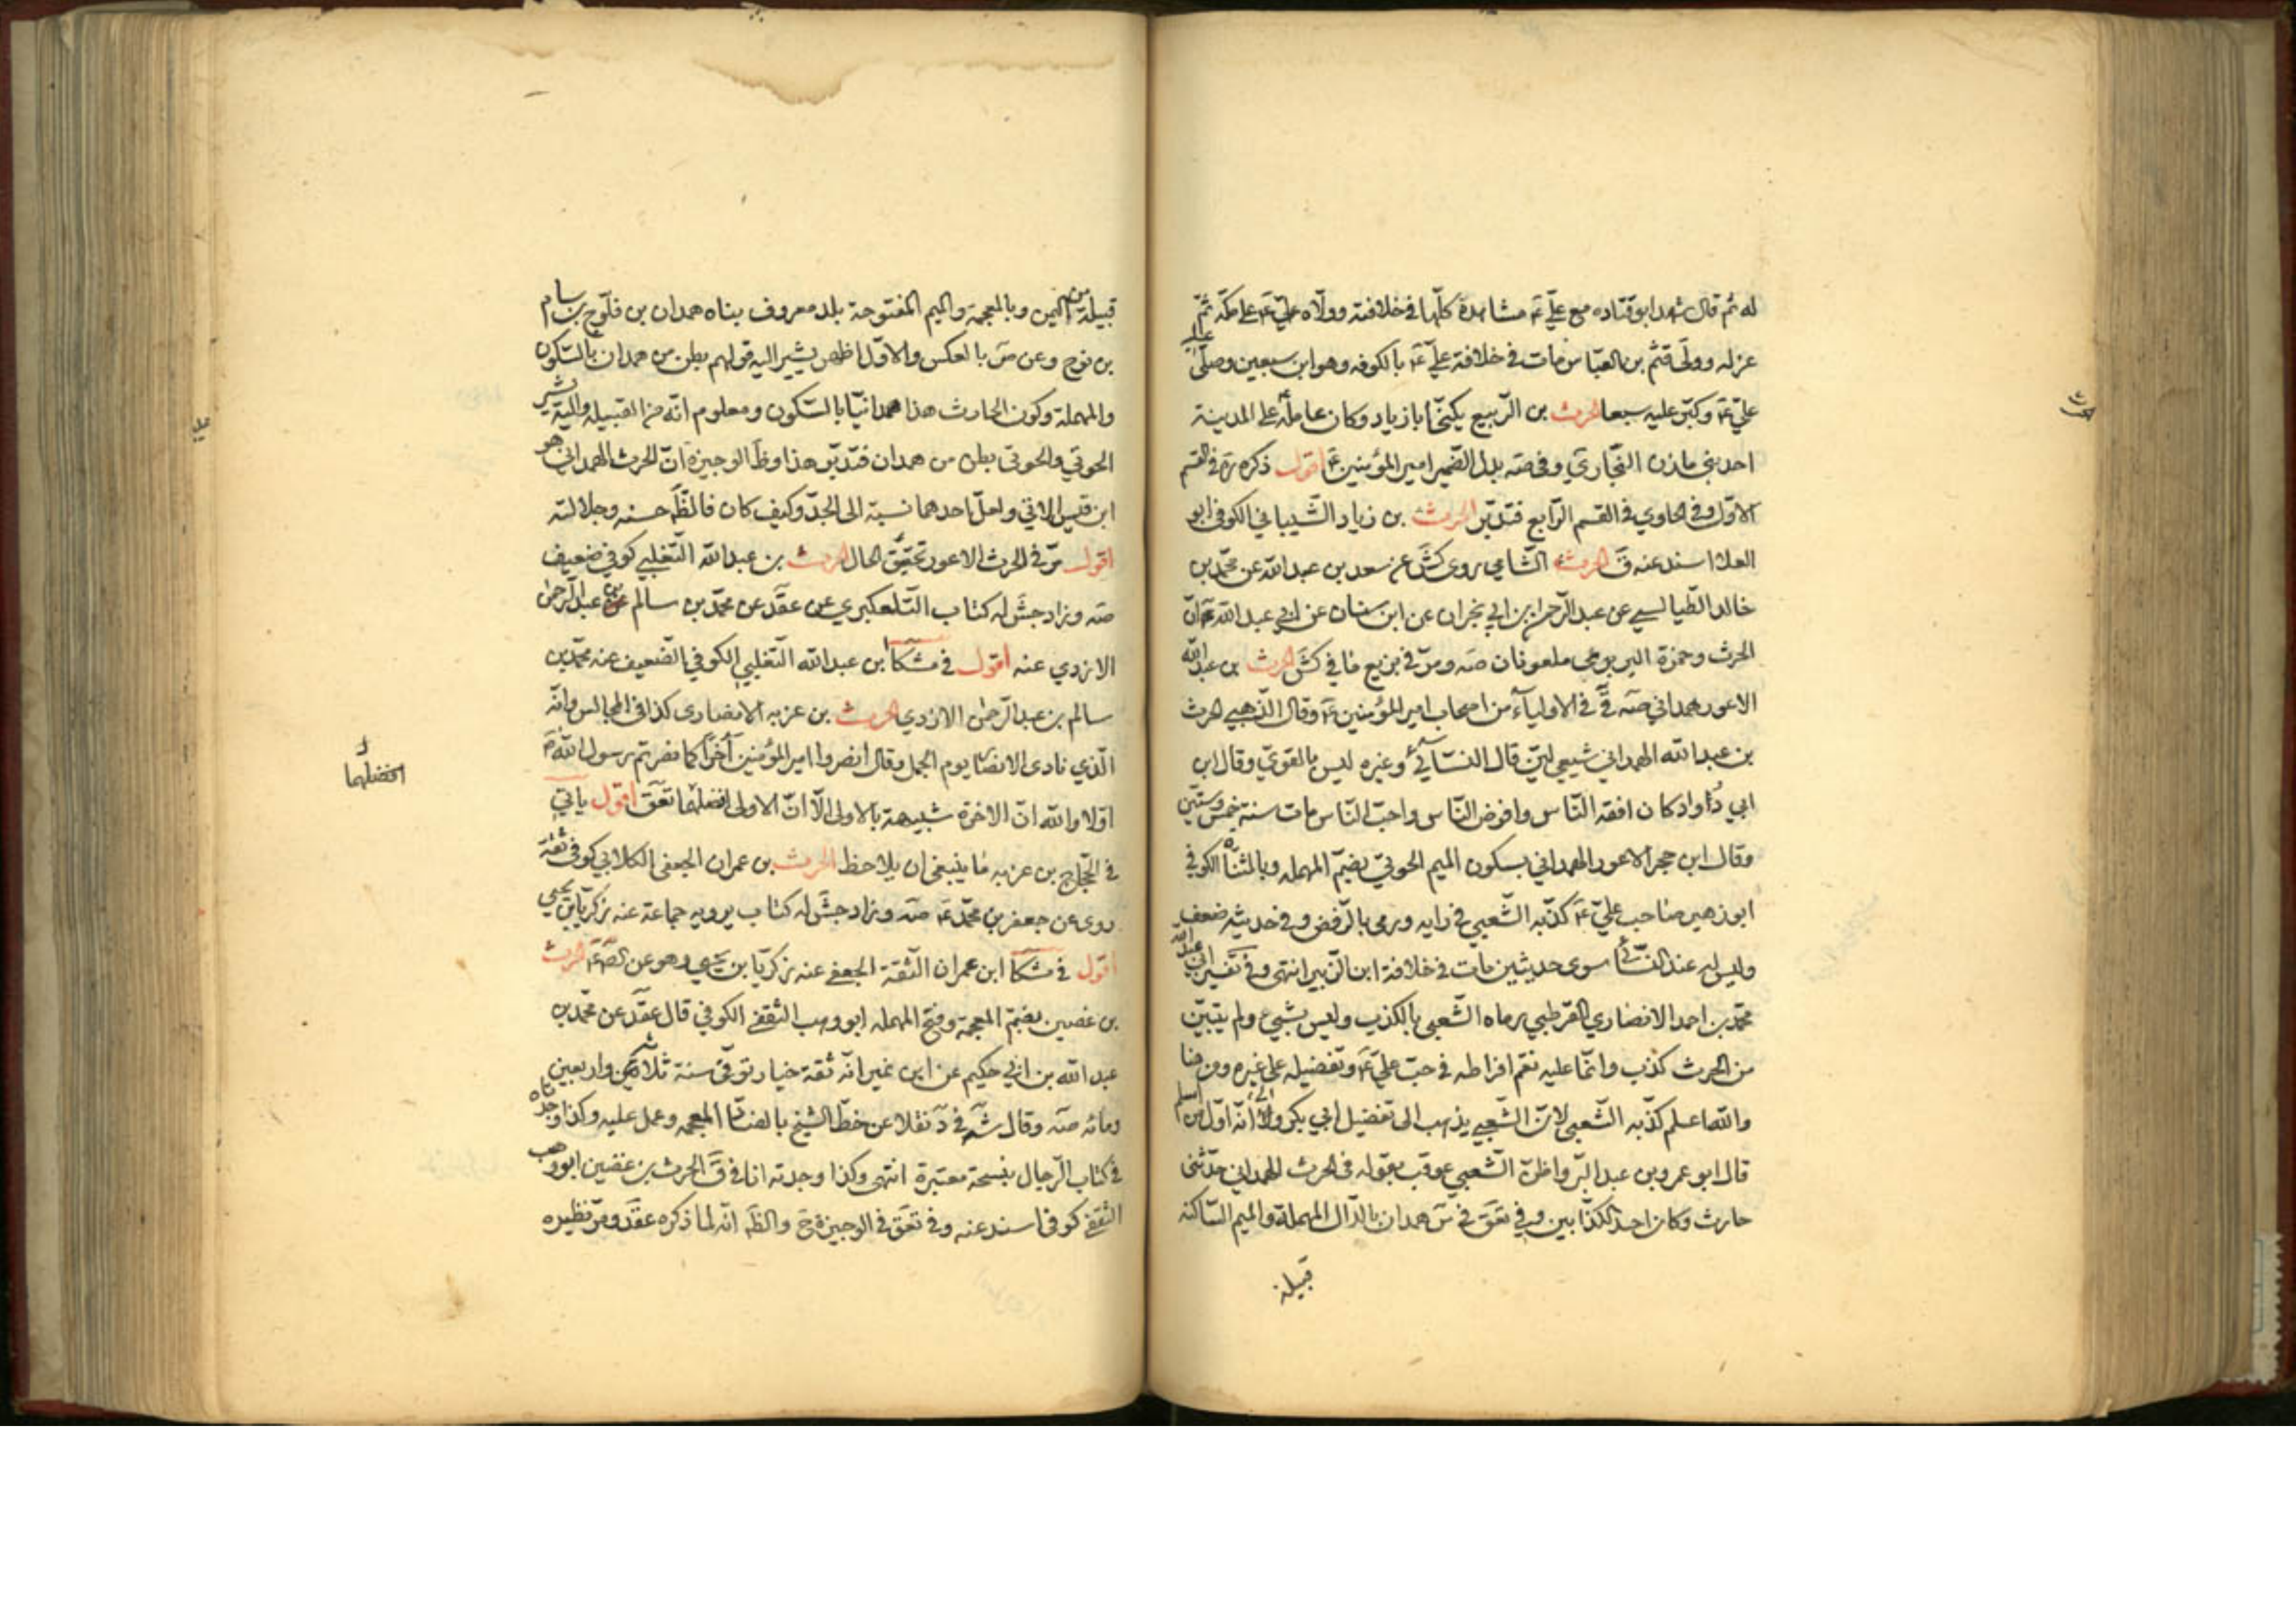 له ثم قال شهد ابو قتاده مع عليّ ع مشاهدة كلّها في خلافته وولّاه عليّ ع على مكّة ثمّ
عزله وولّى قثم بن العبّاس مات في خلافة عليّ ع بالكوفه وهو ابن سبعين وصلّى عليه
عليّ ع وكبّر عليه سبعا الحرث بن الرّبيع يكنّى ابا زياد وكان عامله ع على المدينة
احد بني مازن النجّاري وفي صه بدل الضمير امير المؤمنين ع اقول ذكره في القسم
الاوّل وفي الحاوي في القسم الرّابع فتدبّر الحرث بن زياد الشّيباني الكوفي ابو
العلا اسند عنه ق الحرث الشّامي روى كش عن سعد بن عبد الله عن محمّد بن
خالد الطّيالسي عن عبد الرّحمن بن ابي نجران عن ابن سنان عن ابي عبد الله ع انّ
الحرث وحمزة البربري ملعونان صه ومرّ في بزيع ما في كش الحرث بن عبد الله
الاعور همداني صه ق في الاولياء من اصحاب امير المؤمنين ع وقال الذّهبي الحرث
بن عبد الله الهمداني شيعي ليّن قال النسّائي وغيره ليس بالقويّ وقال ابن
ابي داود كان افقه النّاس وافرض النّاس واحبّ النّاس مات سنة خمس وستّين
وقال ابن حجر الاعور الهمداني بسكون الميم الحوتيّ بضمّ المهمله وبالمثنّاة الكوفي
ابو زهير صاحب عليّ ع كذّبه الشّعبي في رايه ورمى بالرّفض وفي حديثه ضعف
وليس له عند النسّائي سوى حديثين مات في خلافة ابن الزّبير انتهى وفي تفسير ابي عبد الله
محمّد بن احمد الانصاري القرطبي رماه الشّعبي بالكذب وليس بشيء ولم يتبيّن
من الحرث كذب وانّما عليه نقم افراطه في حبّ عليّ ع وتفضيله على غيره ومن هنا
والله اعلم كذّبه الشّعبي لانّ الشّعبي يذهب الى تفضيل ابي بكر والى انّه اوّل من اسلم
قال ابو عمرو بن عبد البرّ واظنّ الشّعبي عوقب بقوله في الحرث الهمداني حدّثني
حارث وكان احد الكذّابين وفي تعق في س همدان بالدّال المهملة والميم السّاكنه
قبيلة
قبيلة من اليمن وبالمعجمة والميم المفتوحة بلد معروف بناه همدان بن فلّوج بن سام
بن نوح وعن ص بالعكس والاوّل اظهر يشير اليه قولهم بطن من همدان بالسّكون
والمهملة وكون الحارث هذا همدانيّا بالسّكون ومعلوم انّه من القبيله واليه يشير
الحوتي والحوتي بطن من همدان فتدبّر هذا وظ الوجيزه انّ الحرث الهمداني هو
ابن قيس الاتي ولعلّ احدهما نسبة الى الجدّ وكيف كان فالظّ حسنه وجلالته
اقول مرّ في الحرث الاعور تحقيق الحال الحرث بن عبد الله التّغلبي كوفي ضعيف
صه وزاد جش له كتاب التّلعكبري عن عقد عن محمّد بن سالم بن عبد الرّحمن
الازدي عنه اقول في مشكا ابن عبد الله التّغلبي الكوفي الضّعيف عنه محمّد بن
سالم بن عبد الرّحمن الازدي الحرث بن غزيه الانصاري كذا في المجالس وانّه
الّذي نادى الانصار يوم الجمل وقال انصروا امير المؤمنين آخرا كما نصرتم رسول الله ص
اوّلا والله انّ الاخرة شبيهة بالاولى الّا انّ الاولى افضلهما تعق اقول ياتي
افضلهما
في الحجّاج بن غزيه ما ينبغي ان يلاحظ الحرث بن عمران الجعفي الكلابي كوفي ثقة
روى عن جعفر بن محمّد ع صه وزاد جش له كتاب يرويه جماعة عنه زكريّا بن يحيى
اقول في مشكا ابن عمران الثّقة الجعفي عنه زكريّا بن يحيى وهو عن الصّ ع الحرث
بن غصين بضمّ المعجمة وفتح المهمله ابو وهب الثّقفي الكوفي قال عقد عن محمّد بن
عبد الله بن ابي حكيم عن ابن نمير انّه ثقة خيار توفّي سنة ثلاث واربعين
ومائه صه وقال شه في د نقلا عن خطّ الشيخ بالضّاد المعجمه وعمل عليه وكذا وجدناه
في كتاب الرّجال بنسخة معتبرة انتهى وكذا وجدته انا في ق الحرث بن غضين ابو وهب
الثّقفي كوفي اسند عنه وفي تعق في الوجيزة ح والظّ انّه لما ذكره عقد ومرّ نظيره